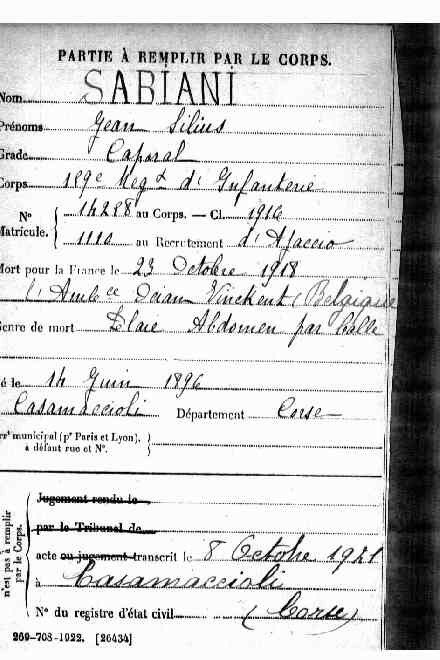 PARTIE À REMPLIR PAR LE CORPS.
Nom SABIANI
Prénoms Jean Silius
Grade Caporal
Corps 189e Regt d' Infanterie
N° Matricule. { 14288 au Corps. — Cl. 1916
1110 au Recrutement d'Ajaccio
Mort pour la France le 23 Octobre 1918
à Ambce Océan Vinckent (Belgique
Genre de mort Plaie Abdomen par balle
né le 14 Juin 1896
Casamaccioli Département Corse
arrt municipal (pr Paris et Lyon), à défaut rue et N°.
n'est pas à remplir par le Corps.
Jugement rendu le
par le Tribunal de
acte ou jugement transcrit le 8 Octobre 1921
à Casamaccioli
N° du registre d'état civil (Corse)
269-708-1922. [26434]